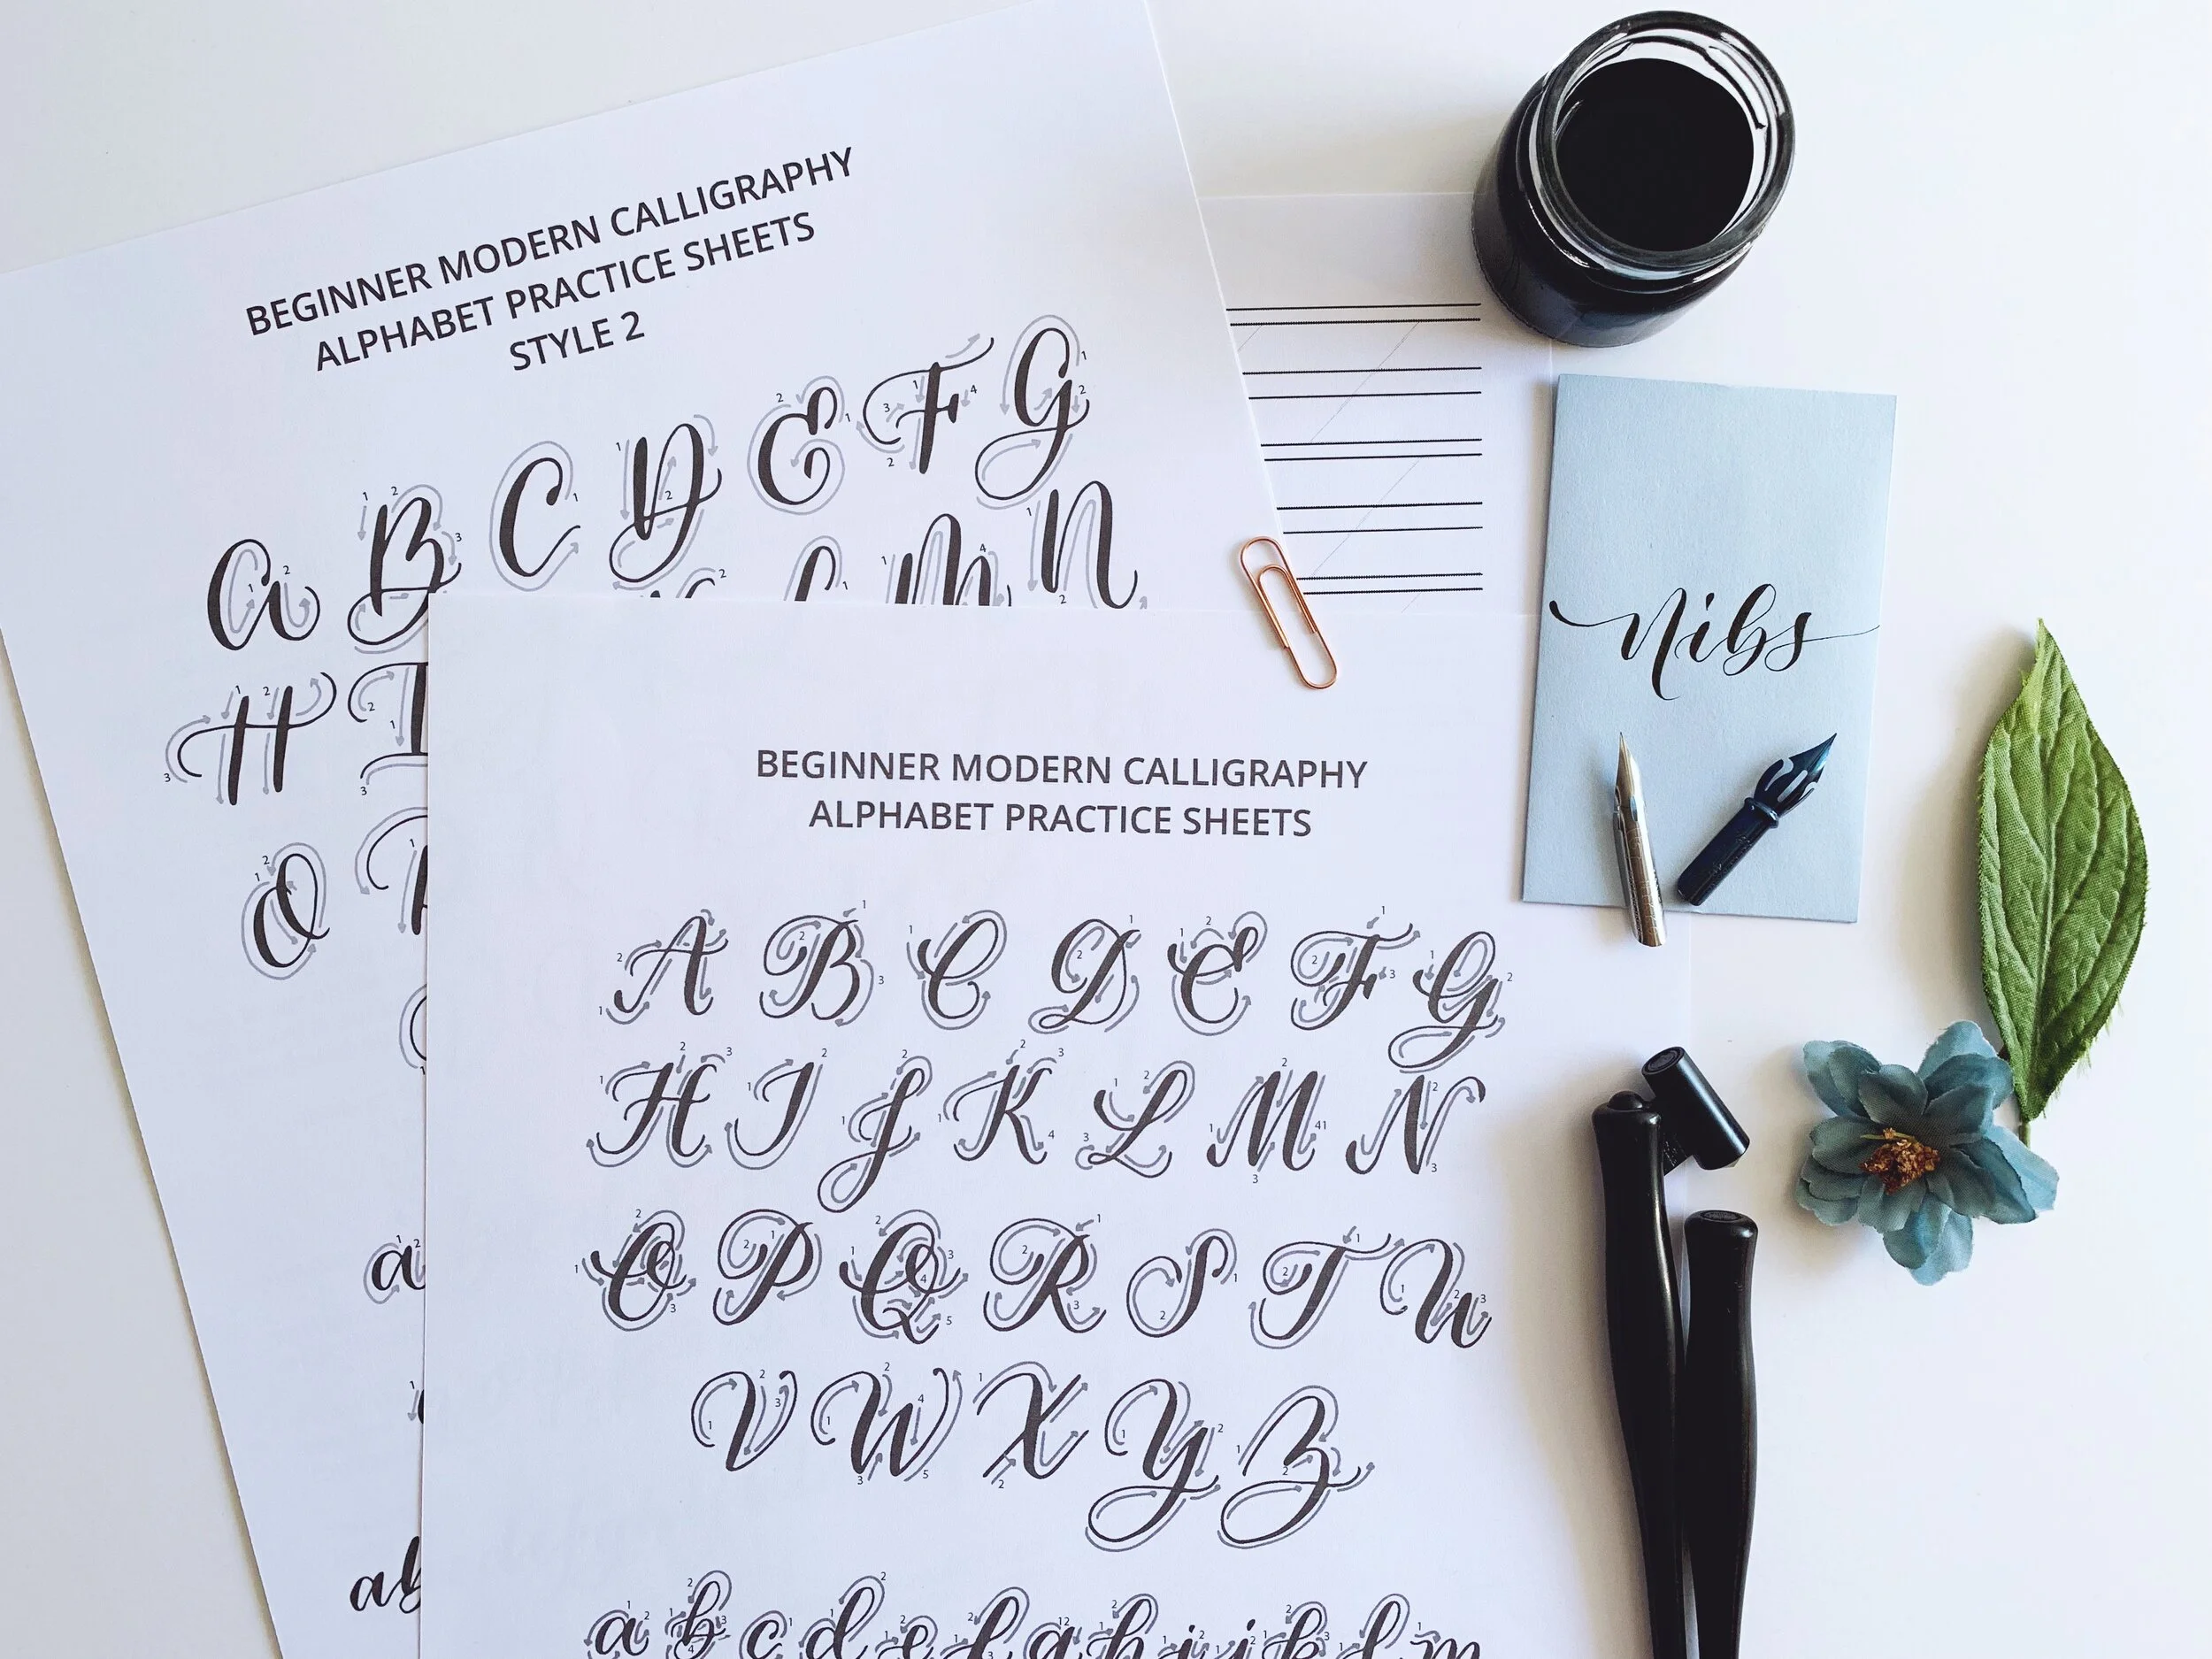 BEGINNER MODERN CALLIGRAPHY
ALPHABET PRACTICE SHEETS
STYLE 2
a B C D E F G
M N
H I
O
a
ab
Nibs
BEGINNER MODERN CALLIGRAPHY
ALPHABET PRACTICE SHEETS
A B C D E F G
H I J K L M N
O P Q R S T U
V W X Y Z
a b c d e f g h i j k l m